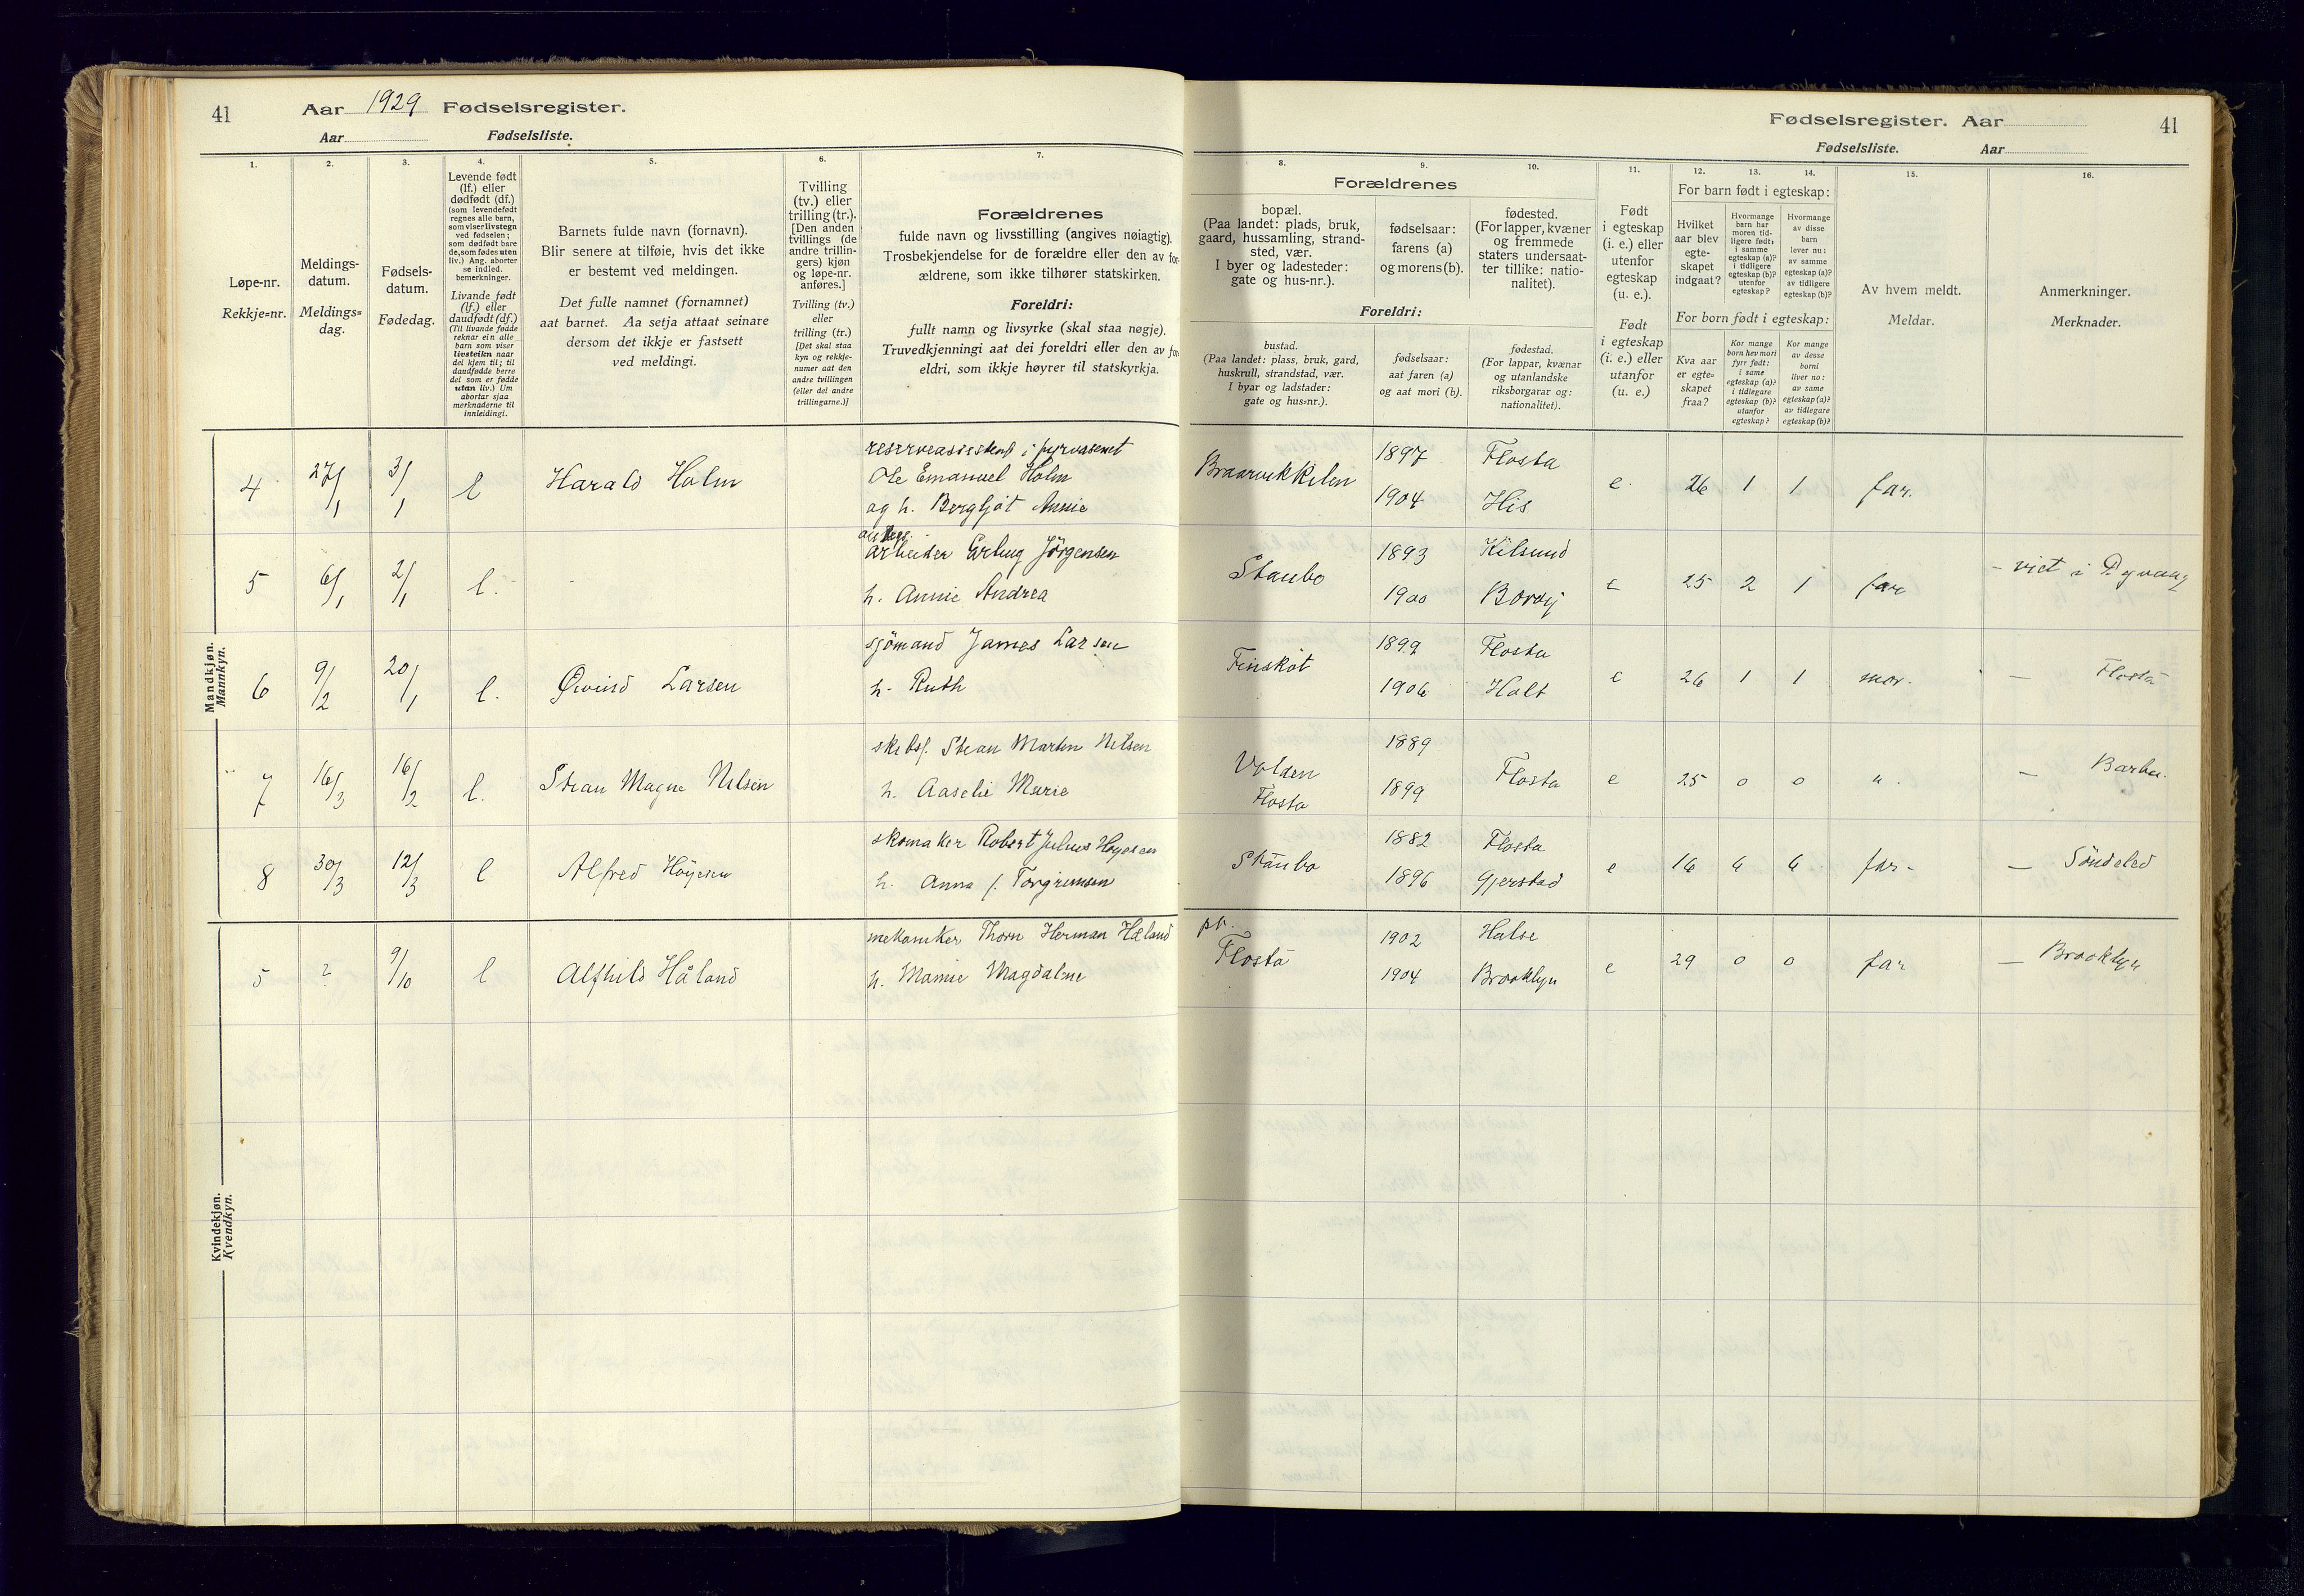 41
Aar 1929 Fødselsregister.
Aar Fødselsliste.
1.
Løpe-nr.
Rekkje=nr.
2.
Meldings-
datum.
Meldings=
dag.
3.
Fødsels-
datum.
Fødedag.
4.
Levende født
(lf.) eller
dødfødt (df.)
(som levendefødt
regnes alle barn,
som viser livstegn
ved fødselen;
som dødfødt bare
de, som fødes uten
liv.) Ang. aborter
se indled.
bemerkninger.
Livande født
(lf.) eller
daudfødt (df.)
(Til livande fødde
reknar ein alle
barn som viser
livsteikn naar
dei kjem til; til
daudfødde berre
dei som er fødde
utan liv.) Um
abortar sjaa
merknaderne til
innleidingi.
5.
Barnets fulde navn (fornavn).
Blir senere at tilføie, hvis det ikke
er bestemt ved meldingen.
Det fulle namnet (fornamnet)
aat barnet. Aa setja attaat seinare
dersom det ikkje er fastsett
ved meldingi.
6.
Tvilling
(tv.) eller
trilling (tr.).
[Den anden
tvillings (de
andre trillin-
gers) kjøn
og løpe-nr.
anføres.]
Tvilling (tv.)
eller
trilling (tr.)
[Det skal staa
kyn og rekkje-
numer aat den
andre tvillingen
(eller dei andre
trillingarne.)]
7.
Forældrenes
fulde navn og livsstilling (angives nøiagtig).
Trosbekjendelse for de forældre eller den av for-
ældrene, som ikke tilhører statskirken.
Foreldri:
fullt namn og livsyrke (skal staa nøgje).
Truvedkjenningi aat dei foreldri eller den av for-
eldri, som ikkje høyrer til statskyrkja.
Mandkjøn.
Mannkyn.
4 27/1 3/1 l Harald Holm
reserveassistent i fyrvæsenet
Ole Emanuel Holm
og h. Bergljot Annie
5 6/1 2/1 l.
arbeider Erling Jörgensen
h. Annie Andrea
6 9/2 20/1 l. Øvind Larsen
sjömand James Larsen
h. Ruth
7 16/3 16/2 l. Stean Magne Nilsen
skibsf. Stean Martin Nilsen
h. Aaselie Marie
8 30/3 12/3 l Alfred Höyesen
skomaker Robert Julius Höyesen
h. Anna f. Torgrimsen
Kvindekjøn.
Kvendkyn.
5 ? 9/10 l Alfhild Håland
mekaniker Thorn Herman Håland
h. Mamie Magdalene
Fødselsregister. Aar
Fødselsliste. Aar
41
8.
Forældrenes
bopæl.
(Paa landet: plads, bruk,
gaard, hussamling, strand-
sted, vær.
I byer og ladesteder:
gate og hus-nr.).
9.
fødselsaar:
farens (a)
og morens (b).
10.
fødested.
(For lapper, kvæner
og fremmede
staters undersaat-
ter tillike: natio-
nalitet).
Foreldri:
bustad.
(Paa landet: plass, bruk, gard,
huskrull, strandstad, vær.
I byar og ladstader:
gate og hus=nr.).
fødselsaar:
aat faren (a)
og aat mori (b).
fødestad.
(For lappar, kvænar
og utanlandske
riksborgarar og:
nationalitet).
11.
Født
i egteskap
(i. e.) eller
utenfor
egteskap
(u. e.).
Født
i egteskap
(i. e.) eller
utanfor
egteskap
(u. e.)
12.
13.
14.
For barn født i egteskap:
Hvilket
aar blev
egte-
skapet
indgaat?
Hvormange
barn har
moren tid-
ligere født:
i samme
egteskap (a)?
i tidligere
egteskap (b)?
utenfor
egteskap?
Hvormange
av disse
barn
lever nu:
av samme
egteskap (a)?
av tidligere
egteskap (b)?
For born født i egteskap:
Kva aar
er egte=
skapet
fraa?
Kor mange
born hev mori
fyrr født:
i same
egteskap (a)?
i tidlegare
egteskap (b)?
utanfor
egteskap?
Kor mange
av desse
borni
liver no:
av same
egteskap (a)?
av tidlegare
egteskap (b)?
15.
Av hvem meldt.
Meldar.
16.
Anmerkninger.
Merknader.
Braarvikkilen 1897 Flosta
1904 His e. 26 1 1 far.
Staubo 1893 Kilsund
1900 Borøy e 25 2 1 far – viet i Dypvaag
Finsköt 1899 Flosta
1906 Holt e 26 1 1 mor. — Flosta
Volden 1889
Flosta 1899 Flosta e 25 0 0 " . — Barbu.
Staubo 1882 Flosta
1896 Gjerstad e 16 6 6 far – — Söndeled
pt.
Flosta 1902 Halse
1904 Brooklyn e 29 0 0 far — Brooklyn